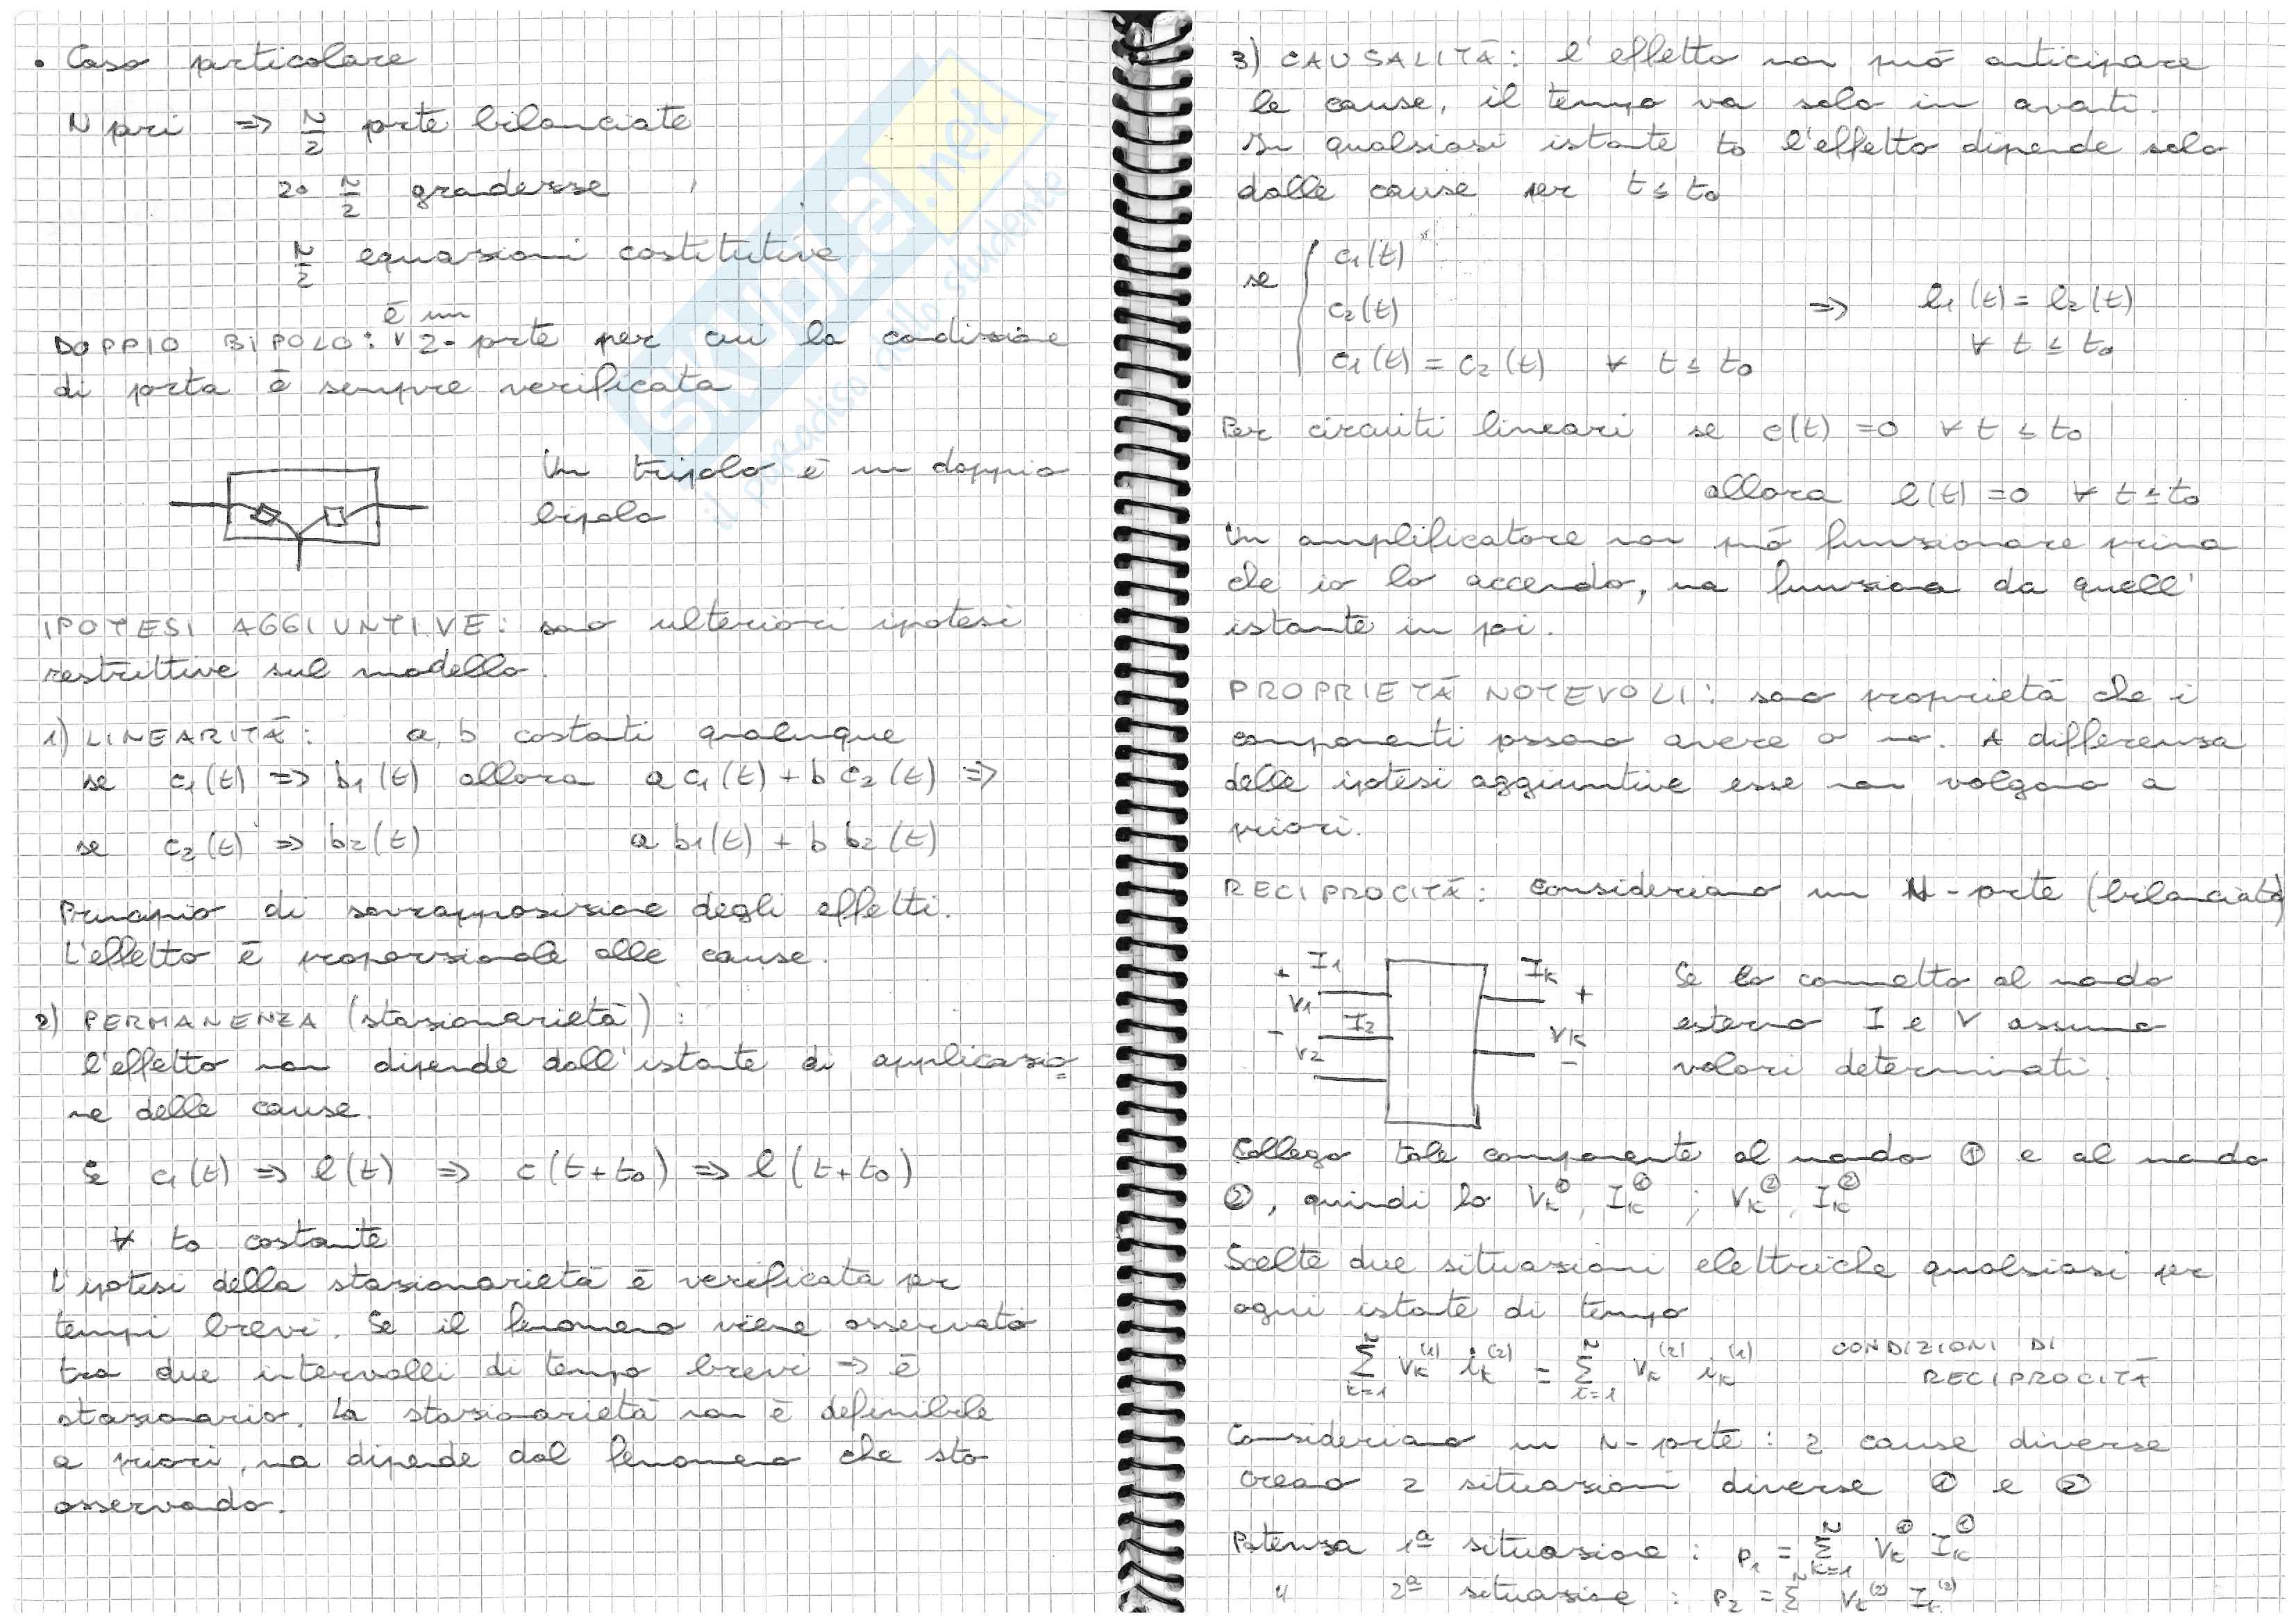 • Caso particolare
N pari => N/2 porte bilanciate
2• N/2 grandezze
N/2 equazioni costitutive
è un
DOPPIO BIPOLO: v 2-porte per cui la condizione
di porta è sempre verificata
Un tripolo è un doppio
bipolo
IPOTESI AGGIUNTIVE: sono ulteriori ipotesi
restrittive sul modello.
1) LINEARITÀ: a, b costanti qualunque
se c₁(t) => b₁(t) allora a c₁(t) + b c₂(t) =>
se c₂(t) => b₂(t) a b₁(t) + b b₂(t)
Principio di sovrapposizione degli effetti.
L'effetto è proporzionale alle cause.
2) PERMANENZA (stazionarietà):
l'effetto non dipende dall'istante di applicazio
ne delle cause.
Se c₁(t) => l(t) => c(t+t₀) => l(t+t₀)
∀ t₀ costante
L'ipotesi della stazionarietà è verificata per
tempi brevi. Se il fenomeno viene osservato
tra due intervalli di tempo brevi => è
stazionario. La stazionarietà non è definibile
a priori, ma dipende dal fenomeno che sto
osservando.
3) CAUSALITÀ: l'effetto non può anticipare
le cause, il tempo va solo in avanti.
In qualsiasi istante t₀ l'effetto dipende solo
dalle cause per t ≤ t₀
c₁(t)
se
c₂(t) => l₁(t) = l₂(t)
c₁(t) = c₂(t) ∀ t ≤ t₀ ∀ t ≤ t₀
Per circuiti lineari se c(t) = 0 ∀ t ≤ t₀
allora l(t) = 0 ∀ t ≤ t₀
Un amplificatore non può funzionare prima
che io lo accendo, ma funziona da quell'
istante in poi.
PROPRIETÀ NOTEVOLI: sono proprietà che i
componenti possono avere o no. A differenza
delle ipotesi aggiuntive esse non valgono a
priori.
RECIPROCITÀ: consideriamo un N-porte (bilanciato)
+ I₁ Iₖ + Se lo connetto al nodo
V₁ esterno I e V assumono
- I₂ Vₖ valori determinati.
V₂ -
Collego tale componente al nodo ① e al nodo
②, quindi ho Vₖ^①, Iₖ^① ; Vₖ^②, Iₖ^②
Scelte due situazioni elettriche qualsiasi per
ogni istante di tempo
N∑k=1 vₖ^(1) iₖ^(2) = N∑k=1 vₖ^(2) iₖ^(1) CONDIZIONI DI
RECIPROCITÀ
Consideriamo un N-porte: 2 cause diverse
creano 2 situazioni diverse ① e ②
Potenza 1ª situazione: p₁ = N∑k=1 Vₖ^① Iₖ^①
" 2ª situazione: p₂ = N∑ Vₖ^(2) Iₖ^(2)
SKUOLA.net
il paradiso dello studente